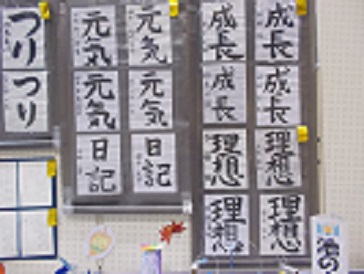 つり
つり
元気
元気
元気
元気
日記
日記
成長
成長
成長
成長
理想
理想
理想
理想